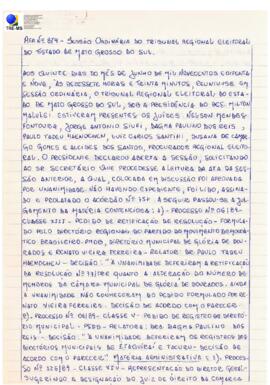 TRE-MS
ATA Nº 829 - SESSÃO ORDINÁRIA DO TRIBUNAL REGIONAL ELEITORAL
DO ESTADO DE MATO GROSSO DO SUL.
AOS QUINZE DIAS DO MÊS DE JUNHO DE MIL NOVECENTOS E OITENTA
E NOVE, ÀS DEZESSETE HORAS E TRINTA MINUTOS, REUNIU-SE EM
SESSÃO ORDINÁRIA, O TRIBUNAL REGIONAL ELEITORAL DO ESTA-
DO DE MATO GROSSO DO SUL, SOB A PRESIDÊNCIA DO DES. MILTON
MALULEI. ESTIVERAM PRESENTES OS JUÍZES: NELSON MENDES
FONTOURA, JORGE ANTONIO SIUFI, DAGMA PAULINO DOS REIS,
PAULO TADEU HAENDCHEN, LUIZ CARLOS SANTINI, SUSANA DE CAMAR-
GO GOMES E ALCIDES DOS SANTOS, PROCURADOR REGIONAL ELEITO-
RAL. O PRESIDENTE DECLAROU ABERTA A SESSÃO, SOLICITANDO
AO SR. SECRETÁRIO QUE PROCEDESSE A LEITURA DA ATA DA SES-
SÃO ANTERIOR, A QUAL, COLOCADA EM DISCUSSÃO FOI APROVADA
POR UNANIMIDADE. NÃO HAVENDO EXPEDIENTE, FOI LIDO, ASSINA-
DO E PUBLICADO O ACÓRDÃO Nº A SEGUIR PASSOU-SE A JUL-
GAMENTO DA MATÉRIA CONTENCIOSA: PROCESSO Nº
CLASSE - PEDIDO DE RETIFICAÇÃO DE RESOLUÇÃO - FORMULA-
DO PELO DIRETÓRIO REGIONAL DO PARTIDO DO MOVIMENTO DEMOCRÁ-
TICO BRASILEIRO - PMDB, DIRETÓRIO MUNICIPAL DE GLÓRIA DE DOU-
RADOS E VIEIRA FERREIRA - RELATOR: DR. PAULO TADEU
HAENDCHEN - DECISÃO: "A UNANIMIDADE DEFERIRAM A RETIFICAÇÃO
DA RESOLUÇÃO Nº QUANTO A ALTERAÇÃO DO NÚMERO DE
MEMBROS DA CÂMARA MUNICIPAL DE GLÓRIA DE DOURADOS, AINDA
À UNANIMIDADE NÃO CONHECERAM DO PEDIDO FORMULADO POR
VIEIRA FERREIRA - DECISÃO DE ACORDO COM O PARECER".
PROCESSO Nº CLASSE V - PEDIDO DE REGISTRO DE DIRETÓ-
RIO MUNICIPAL - RELATORA: DRA. DAGMA PAULINO DOS
REIS - DECISÃO: "A UNANIMIDADE DEFERIRAM OS REGISTROS DOS
DIRETÓRIOS MUNICIPAIS DE E TACURU - DECISÃO DE
ACORDO COM O PARECER". MATÉRIA ADMINISTRATIVA: PROCES-
SO Nº CLASSE - REPRESENTAÇÃO DO DIRETOR GERAL
SUGERINDO A DESIGNAÇÃO DO JUIZ DE DIREITO DA COMARCA